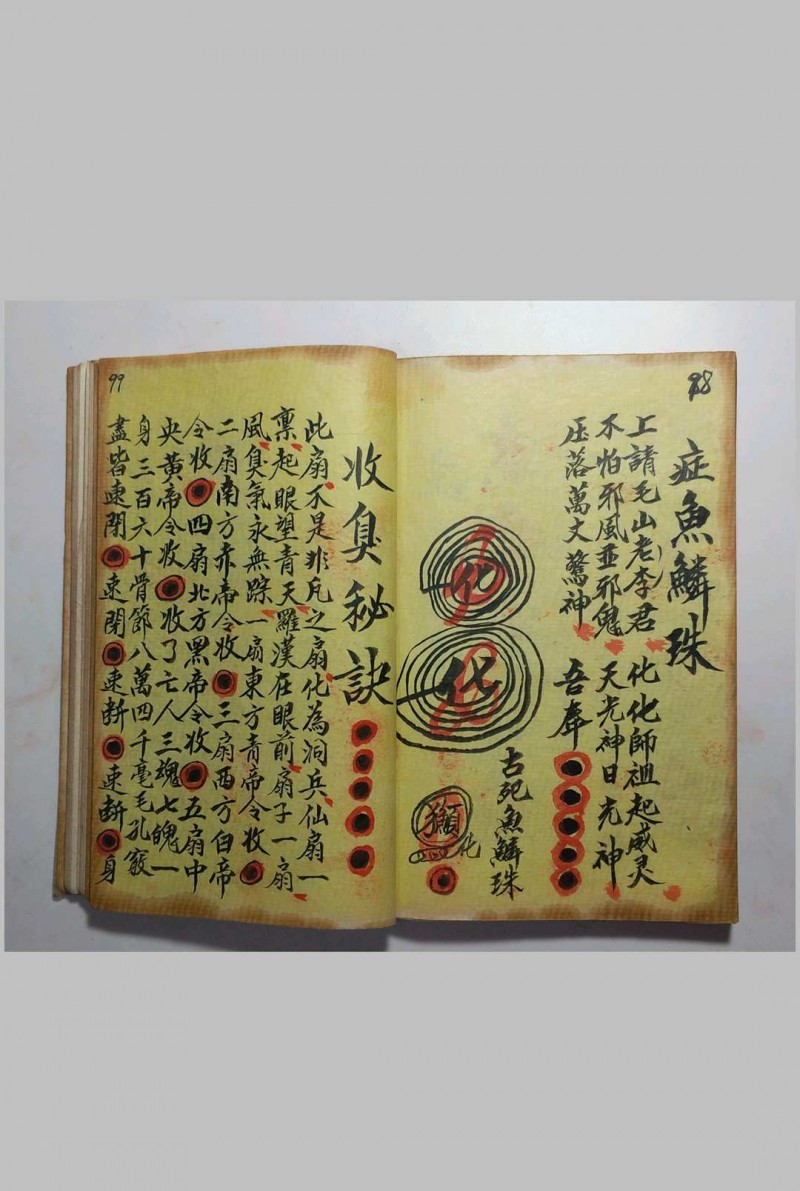 98
症魚鱗珠
上請毛山老李君 化化師祖起威灵
不怕邪風並邪鬼 天光神日光神
压落萬丈驚神 吾奉
古死魚鱗珠
化
化
獺
化
99
收臭秘訣
此扇不是非凡之扇化為洞兵仙扇一
禀起眼望青天羅漢在眼前扇子一扇
風臭氣永無踪一扇東方青帝令收
二扇南方赤帝令收三扇西方白帝
令收四扇北方黑帝令收五扇中
央黃帝令收收了亡人三魂七魄一
身三百六十骨節八萬四千毫毛孔竅
盡皆速閉速閉速斬速斬身